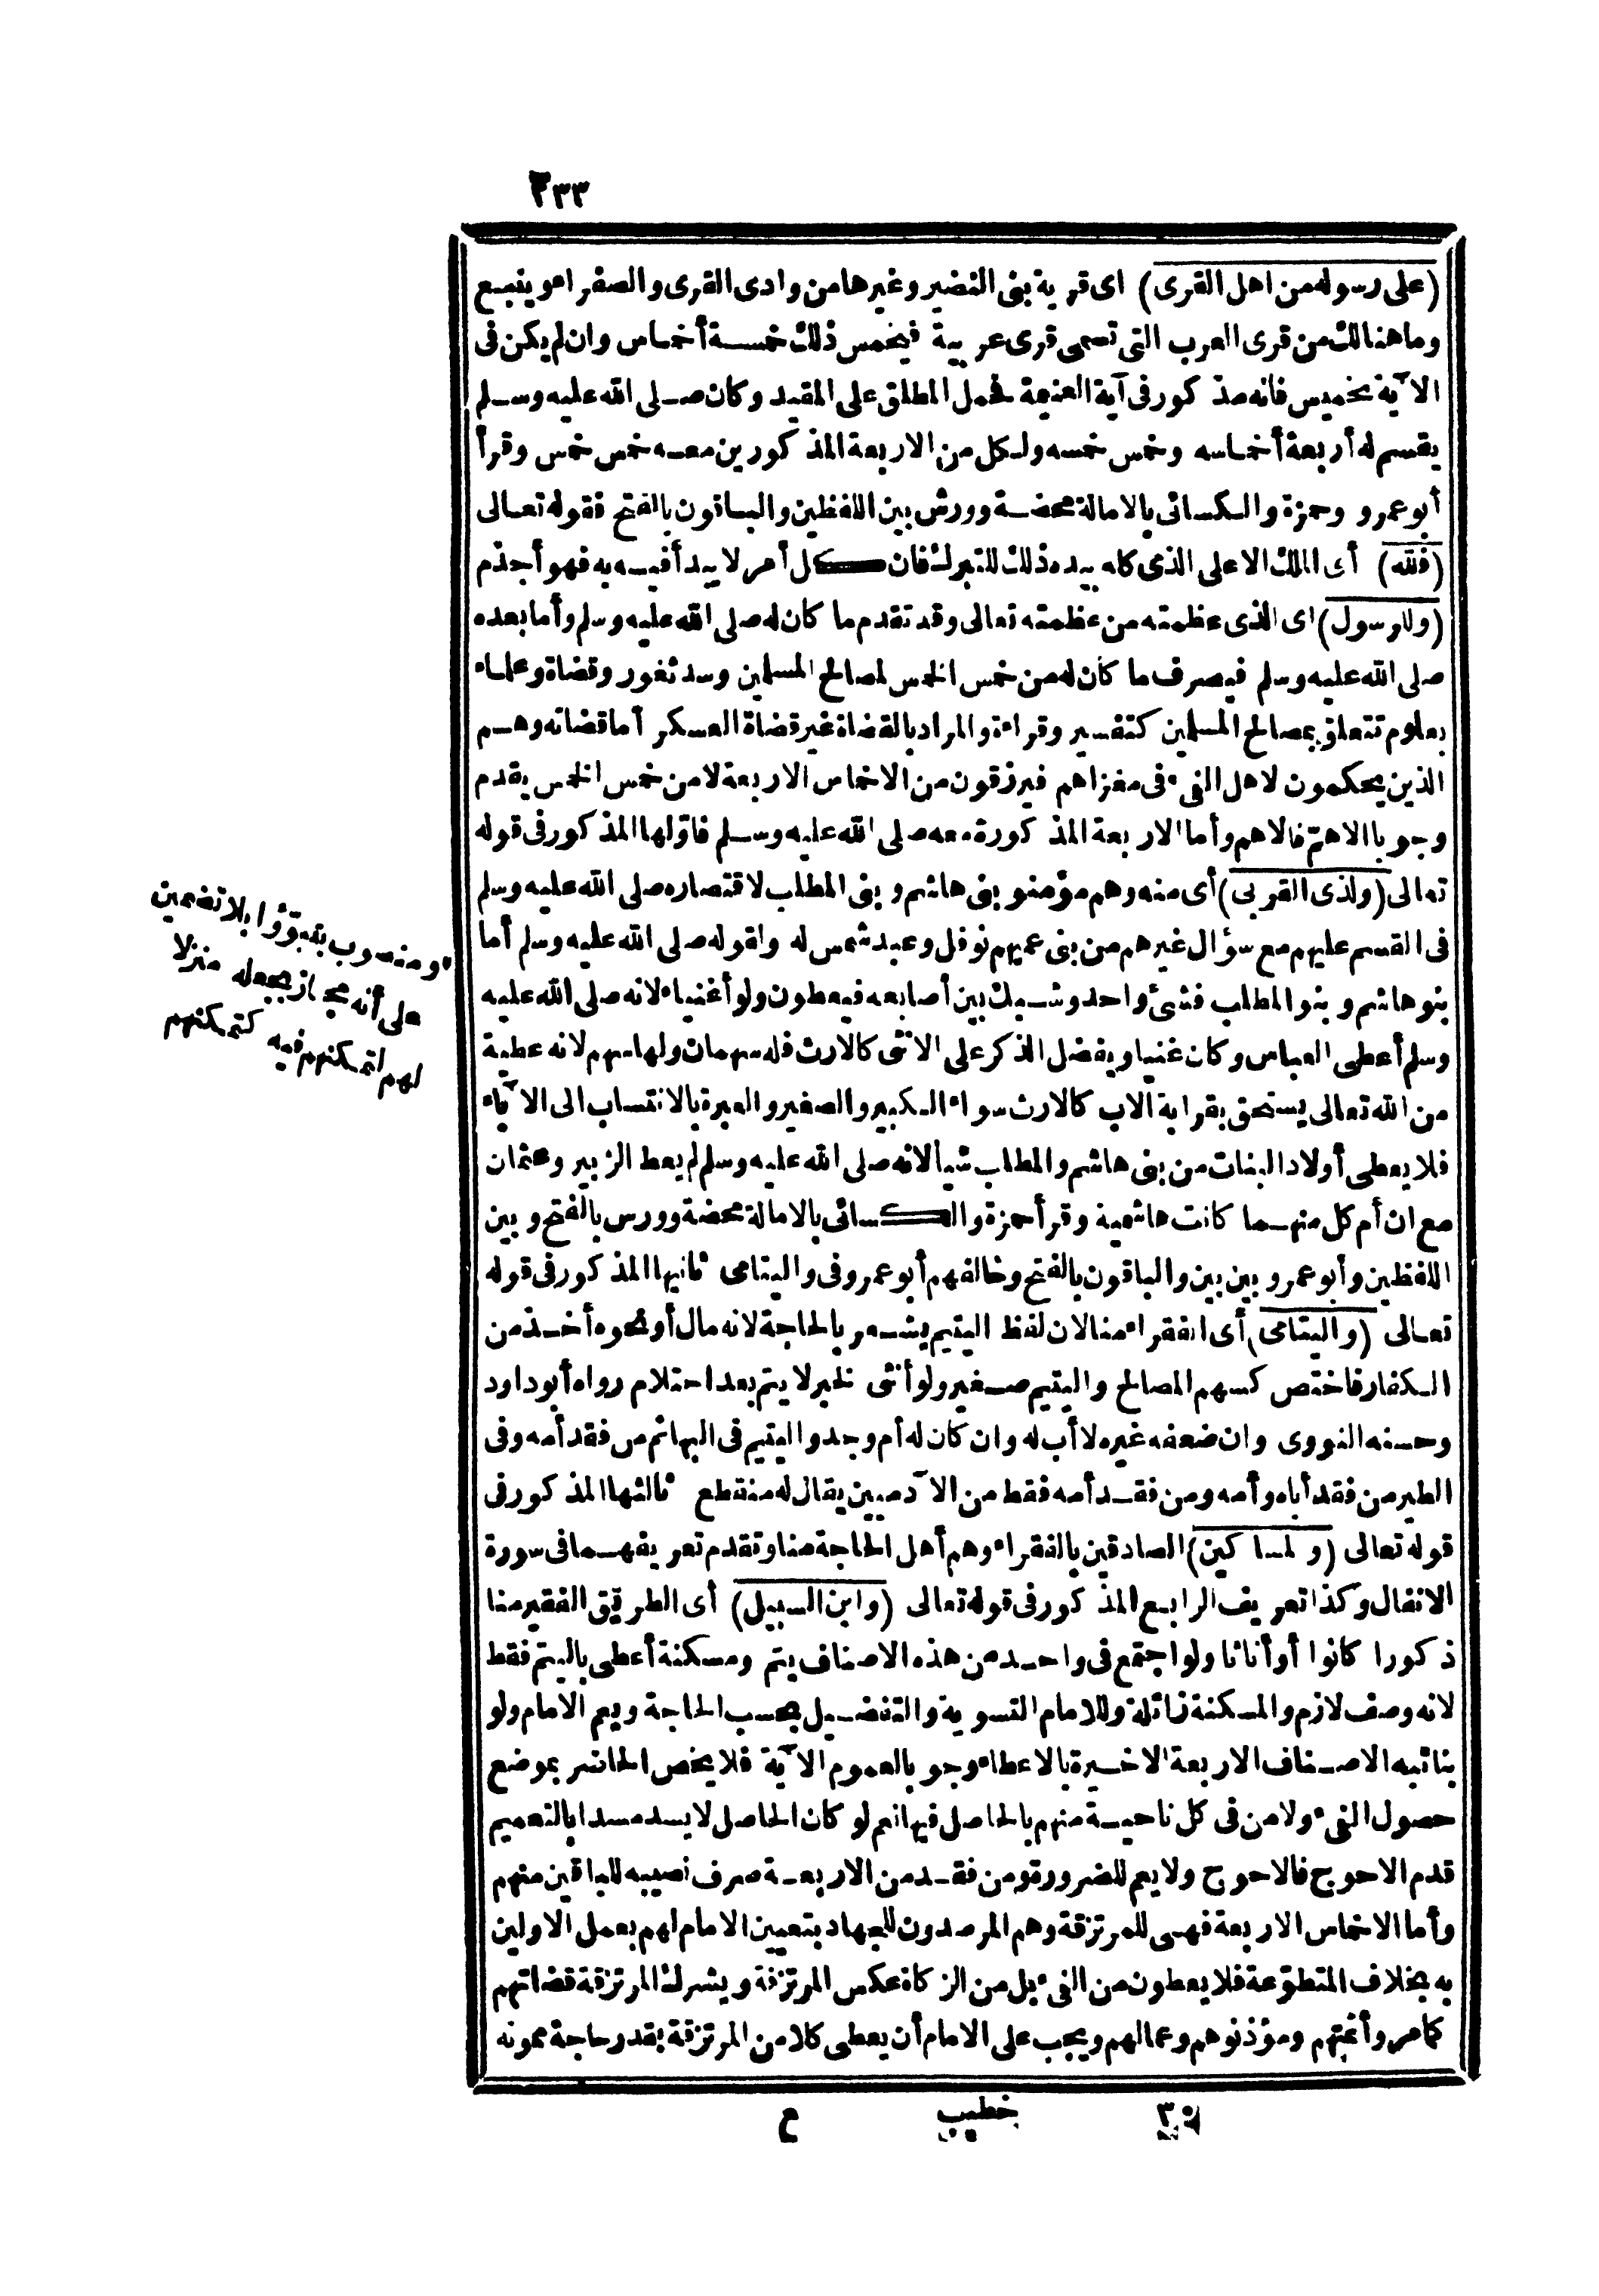 ٢٣٣
(على رسوله من اهل القرى) اى قرية بنى النضير وغيرها من وادى القرى والصفراء وينبع
وما هنالك من قرى العرب التى تسمى قرى عربية فيخمس ذلك خمسة أخماس وان لم يكن فى
الآية تخميس فانه مذكور فى آية الغنيمة فحمل المطلق على المقيد وكان صلى الله عليه وسلم
يقسم له أربعة أخماسه وخمس خمسه ولكل من الاربعة المذكورين معه خمس خمس وقرأ
أبو عمرو وحمزة والكسائى بالامالة محضة وورش بين اللفظين والباقون بالفتح فقوله تعالى
(فلله) أى الملك الاعلى الذى كله بيده ذلك للتبرك فان كل أمر لا يبدأ فيه به فهو أجذم
(وللرسول) اى الذى عظمته من عظمته تعالى وقد تقدم ما كان له صلى الله عليه وسلم وأما بعده
صلى الله عليه وسلم فيصرف ما كان له من خمس الخمس لمصالح المسلمين وسد ثغور وقضاة وعلماء
بعلوم تتعلق بمصالح المسلمين كتفسير وقراءة والمراد بالقضاة غير قضاة العسكر أما قضاته وهم
الذين يحكمون لاهل الفىء فى مغزاهم فيرزقون من الاخماس الاربعة لا من خمس الخمس يقدم
وجوبا الاهم فالاهم وأما الاربعة المذكورة معه صلى الله عليه وسلم فاولها المذكور فى قوله
تعالى (ولذى القربى) أى منه وهم مؤمنو بنى هاشم وبنى المطلب لاقتصاره صلى الله عليه وسلم
فى القسم عليهم مع سؤال غيرهم من بنى عميهم نوفل وعبد شمس له ولقوله صلى الله عليه وسلم أما
بنو هاشم وبنو المطلب فشئ واحد وشبك بين أصابعه فيعطون ولو أغنياء لانه صلى الله عليه
وسلم أعطى العباس وكان غنيا ويفضل الذكر على الانثى كالارث فله سهمان ولها سهم لانه عطية
من الله تعالى يستحق بقرابة الاب كالارث سواء الكبير والصغير والعبرة بالانتساب الى الآباء
فلا يعطى أولاد البنات من بنى هاشم والمطلب شيأ لانه صلى الله عليه وسلم لم يعط الزبير وعثمان
مع ان أم كل منهما كانت هاشمية وقرأ حمزة والكسائى بالامالة محضة وورس بالفتح وبين
اللفظين وأبو عمرو بين بين والباقون بالفتح وخالفهم أبو عمرو فى واليتامى ثانيها المذكور فى قوله
تعالى (واليتامى) أى الفقراء منا لان لفظ اليتيم يشعر بالحاجة لانه مال أو نحوه أخذ من
الكفار فاختص كسهم المصالح واليتيم صغير ولو أنثى لخبر لا يتم بعد احتلام رواه أبو داود
وحسنه النووى وان ضعفه غيره لا أب له وان كان له أم وجد واليتيم فى البهائم من فقد أمه وفى
الطير من فقد أباه وأمه ومن فقد أمه فقط من الآدميين يقال له منقطع ثالثها المذكور فى
قوله تعالى (والمساكين) الصادقين بالفقراء وهم أهل الحاجة منا وتقدم تعريفهما فى سورة
الانفال وكذا تعريف الرابع المذكور فى قوله تعالى (وابن السبيل) أى الطريق الفقير منا
ذكورا كانوا أو أناثا ولو اجتمع فى واحد من هذه الاصناف يتم ومسكنة أعطى باليتم فقط
لانه وصف لازم والمسكنة زائلة وللامام التسوية والتفضيل بحسب الحاجة ويعم الامام ولو
بنائبه الاصناف الاربعة الاخيرة بالاعطاء وجوبا لعموم الآية فلا يخص الحاضر بموضع
حصول الفىء ولا من فى كل ناحية منهم بالحاصل فيها نعم لو كان الحاصل لا يسد مسدا بالتعميم
قدم الاحوج فالاحوج ولا يعم للضرورة ومن فقد من الاربعة صرف نصيبه للباقين منهم
وأما الاخماس الاربعة فهى للمرتزقة وهم المرصدون للجهاد بتعيين الامام لهم بعمل الاولين
به بخلاف المتطوعة فلا يعطون من الفىء بل من الزكاة عكس المرتزقة ويشرك المرتزقة قضاتهم
كما مر وأئمتهم ومؤذنوهم وعمالهم ويجب على الامام أن يعطى كلا من المرتزقة بقدر حاجة ممونه
ومنصوب بتبوؤا بلا تضمين
على أنه مجاز بجعله منزلا
لهم لتمكنهم فيه كتمكنهم
٣٠ خطيب ع